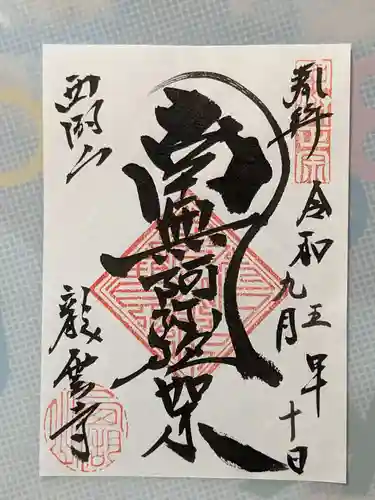 奉拝
令和五年
九月十日
南無阿弥陀佛
西湖山
龍雲寺